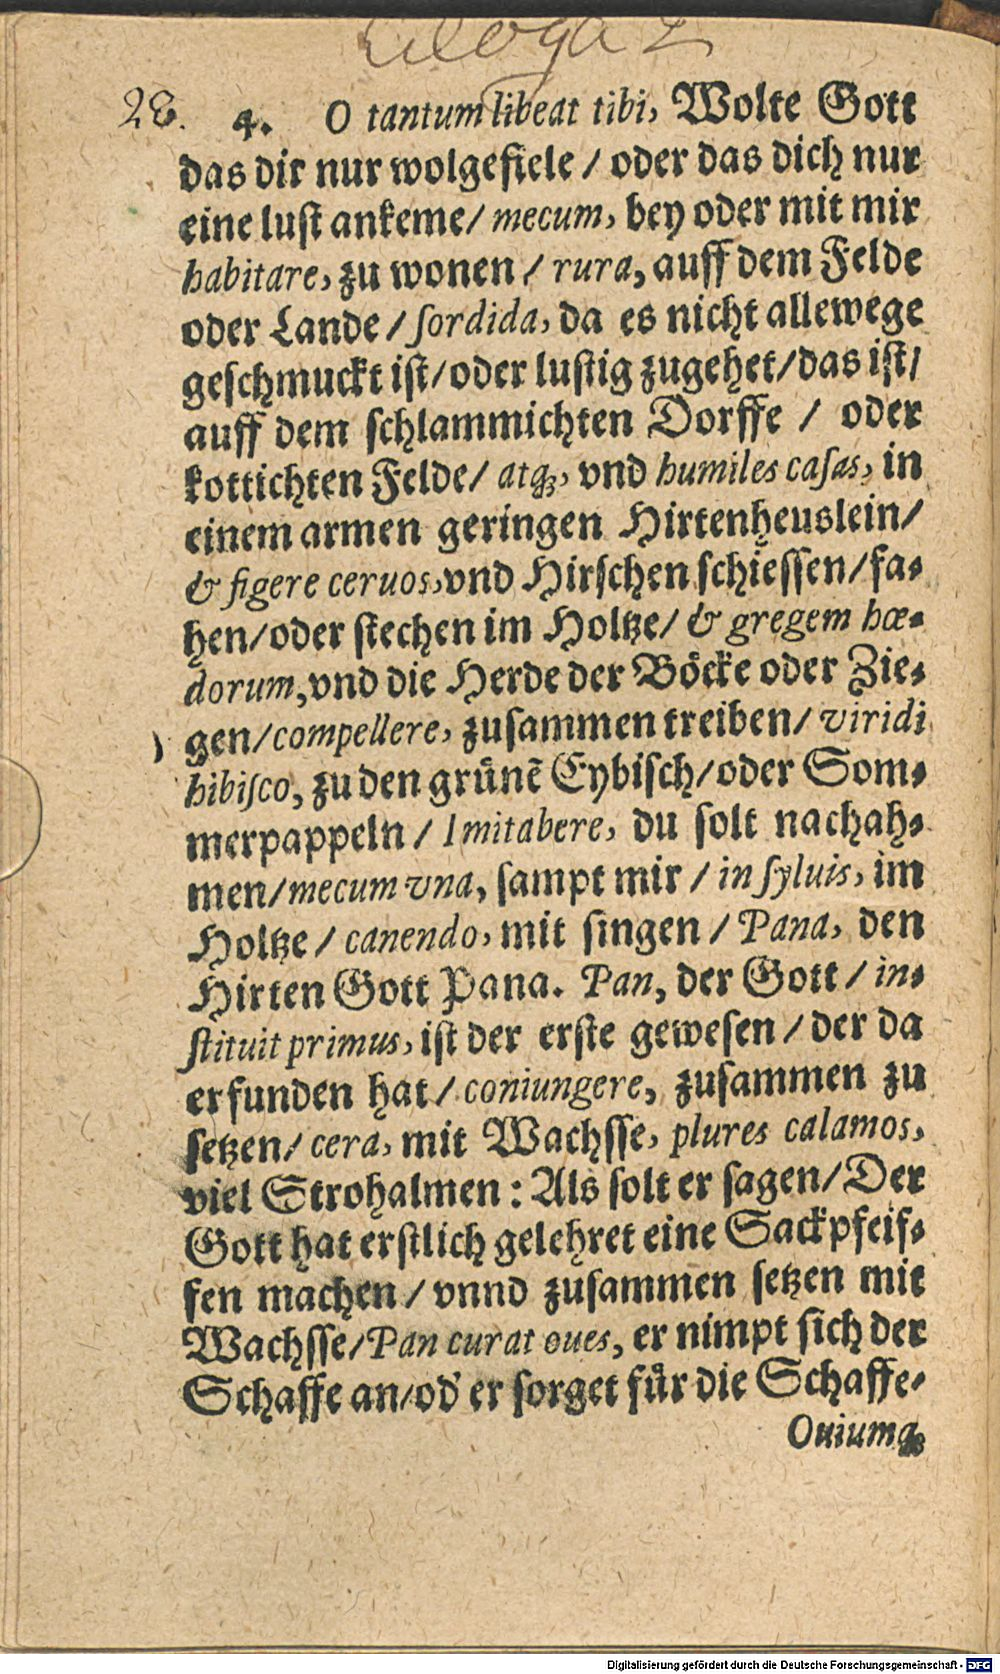 Ecloga 2
28. 4. O tantum libeat tibi, Wolte Gott
das dir nur wolgefiele / oder das dich nur
eine lust ankeme / mecum, bey oder mit mir
habitare, zu wonen / rura, auff dem Felde
oder Lande / ſordida, da es nicht allewege
geschmuckt ist / oder lustig zugehet / das ist /
auff dem schlammichten Dorffe / oder
kottichten Felde / atq́;, vnd humiles caſas, in
einem armen geringen Hirtenheuslein /
& figere ceruos, vnd Hirschen schiessen / fa⸗
hen / oder stechen im Holtze / & gregem hœ⸗
dorum, vnd die Herde der Böcke oder Zie⸗
gen / compellere, zusammen treiben / viridi
hibiſco, zu den grünē Eybisch / oder Som⸗
merpappeln / Imitabere, du solt nachah⸗
men / mecum vna, sampt mir / in ſyluis, im
Holtze / canendo, mit singen / Pana, den
Hirten Gott Pana. Pan, der Gott / in⸗
ſtituit primus, ist der erste gewesen / der da
erfunden hat / coniungere, zusammen zu
setzen / cera, mit Wachsse, plures calamos,
viel Strohalmen : Als solt er sagen / Der
Gott hat erstlich gelehret eine Sackpfeif⸗
fen machen / vnnd zusammen setzen mit
Wachsse / Pan curat oues, er nimpt sich der
Schaffe an / od' er sorget für die Schaffe⸗
Ouiumq;
Digitalisierung gefördert durch die Deutsche Forschungsgemeinschaft - DFG